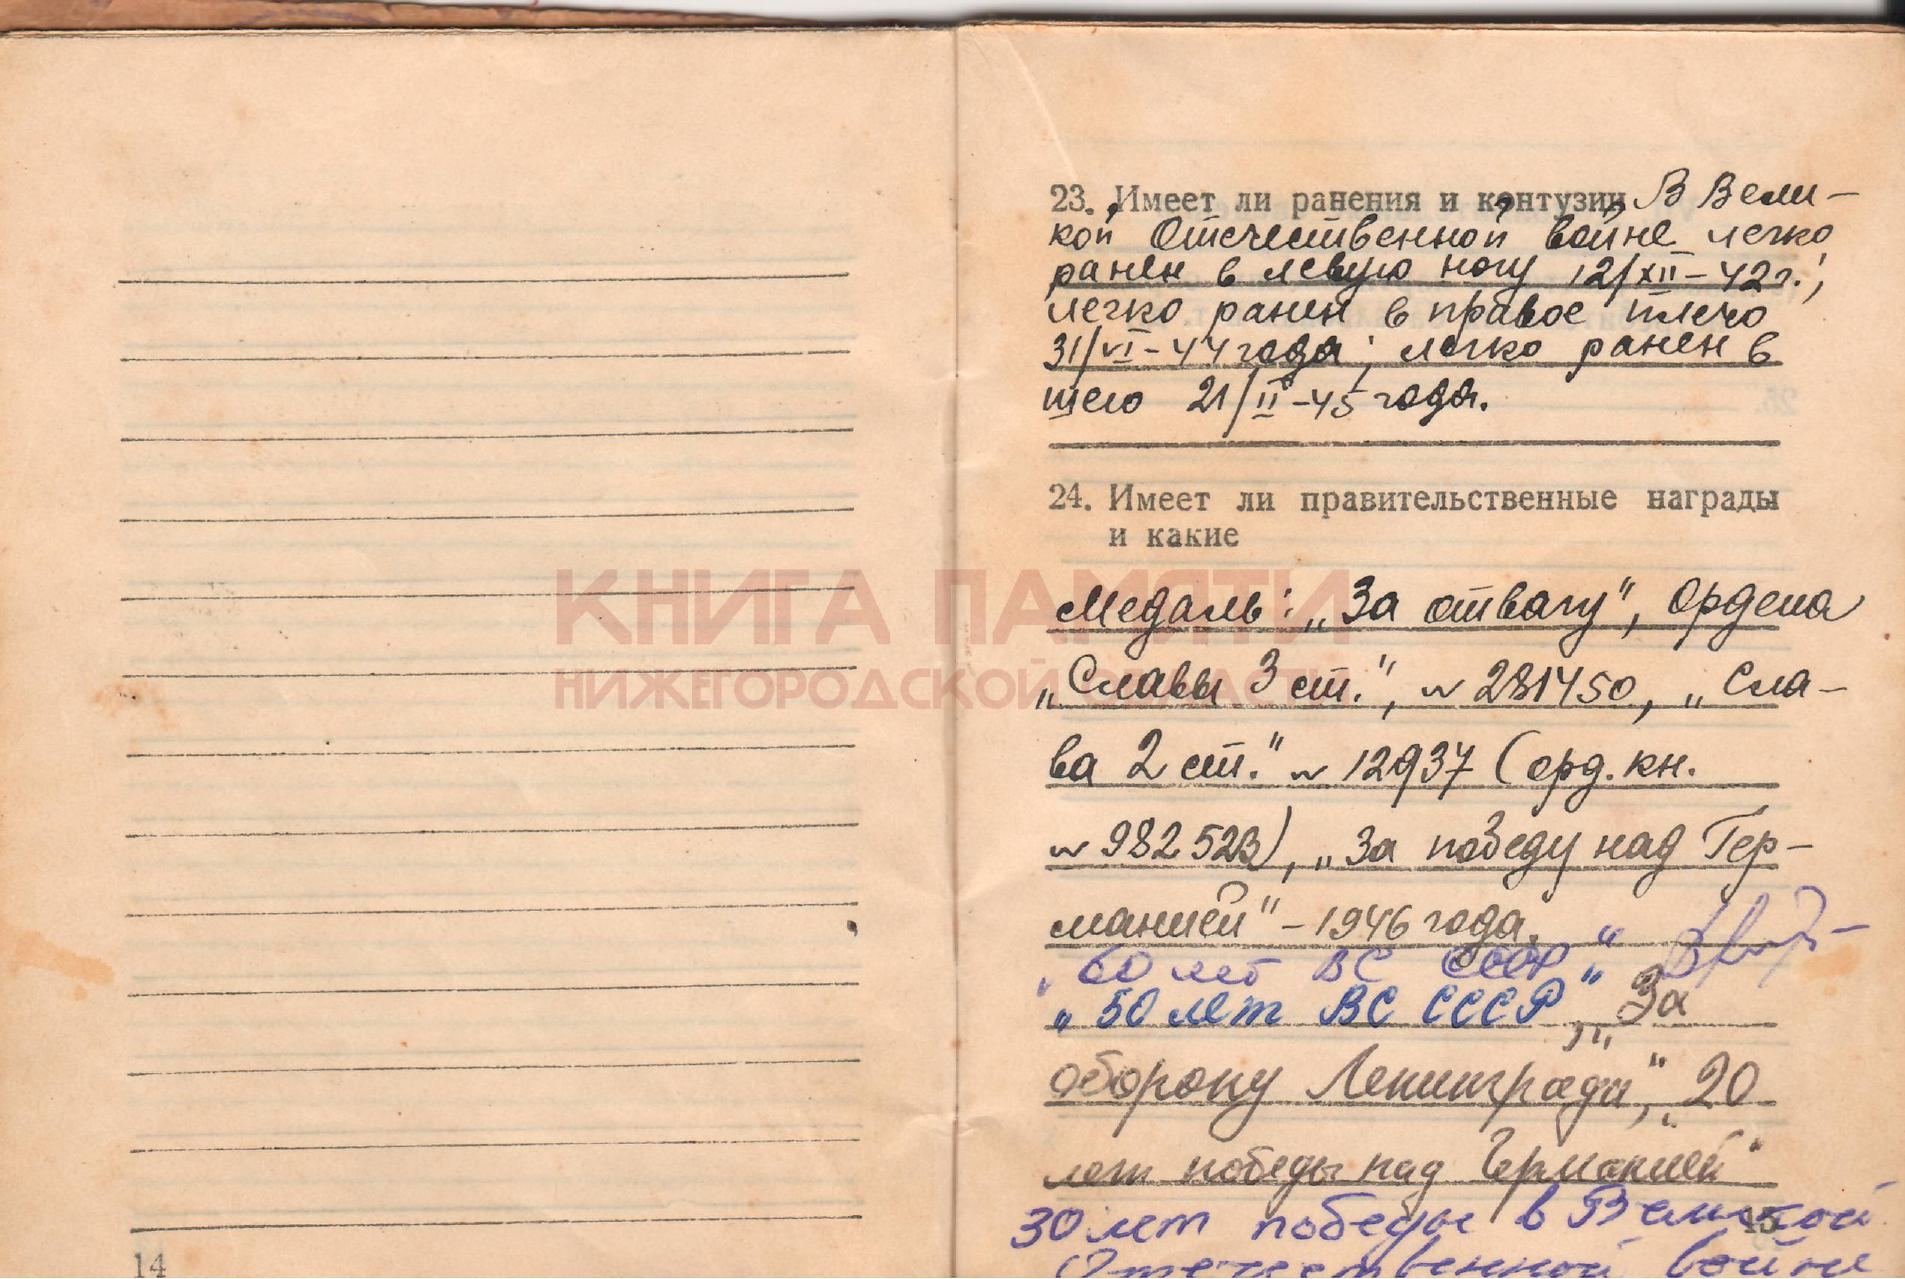 23. Имеет ли ранения и контузии В Вели-
кой Отечественной войне легко
ранен в левую ногу 12/XII-42г.;
легко ранен в правое плечо
31/VI-44 года; легко ранен в
шею 21/II-45 года.
24. Имеет ли правительственные награды
и какие
Медаль: „За отвагу", Ордена
„Славы 3 ст.", № 281450, „Сла-
ва 2 ст." № 12937 (орд. кн.
№ 982523), „За победу над Гер-
манией" - 1946 года.
„60 лет ВС СССР"
„50 лет ВС СССР", „За
оборону Ленинграда", „20
лет победы над Германией"
30 лет победы в Великой
Отечественной войне
14
15
КНИГА ПАМЯТИ
НИЖЕГОРОДСКОЙ ОБЛАСТИ